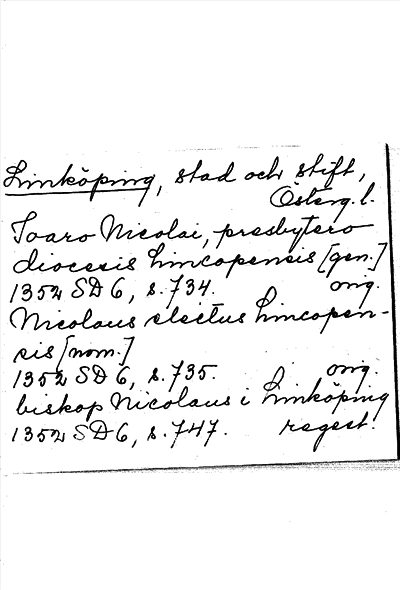 Linköping, stad och stift,
Österg. l.
Ioaro Nicolai, presbytero
diocesis Lincopensis [gen.]
1352 SD 6, s. 734. orig.
Nicolaus electus Lincopen-
sis [nom.]
1352 SD 6, s. 735. orig.
biskop Nicolaus i Linköping
1352 SD 6, s. 747. regest!